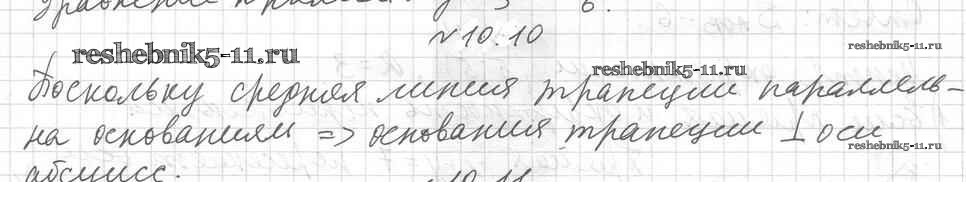 Уравнение
№10.10
reshebnik5-11.ru
reshebnik5-11.ru
reshebnik5-11.ru
Поскольку средняя линия трапеции параллель-
на основаниям => основания трапеции ⊥ оси
reshebnik5-11.ru
абсцисс.
10.11